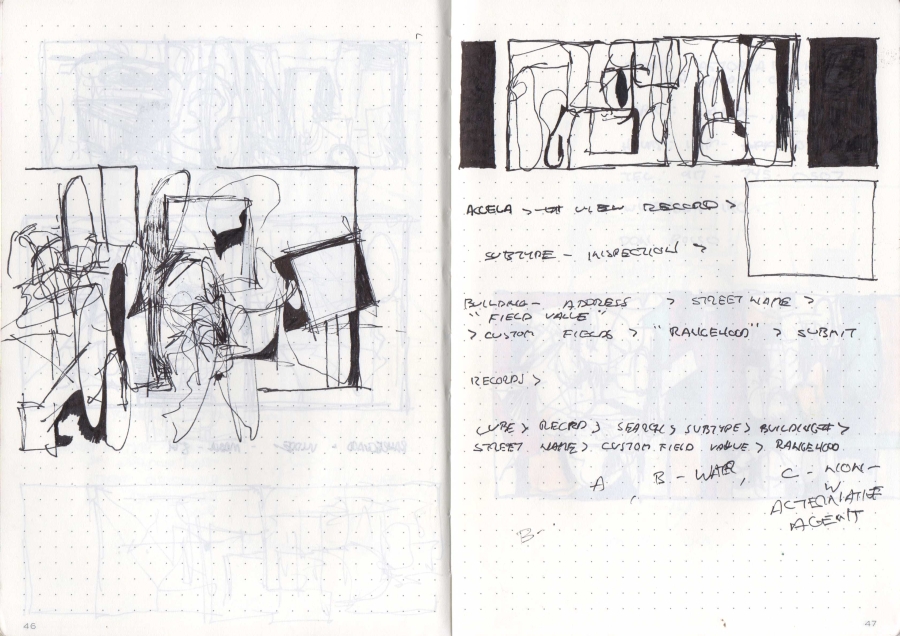 ACCELA > VIEW RECORD >
SUBTYPE - INSPECTION >
BUILDING - ADDRESS > STREET NAME >
" FIELD VALUE "
> CUSTOM FIELDS > "RANGEHOOD" > SUBMIT
RECORDS >
> RECRD > SEARCH > SUBTYPE > BUILDING# >
STREET NAME > CUSTOM FIELD VALUE > RANGEHOOD
A , B - , C - NON-
W
AGENT
B-
46
47